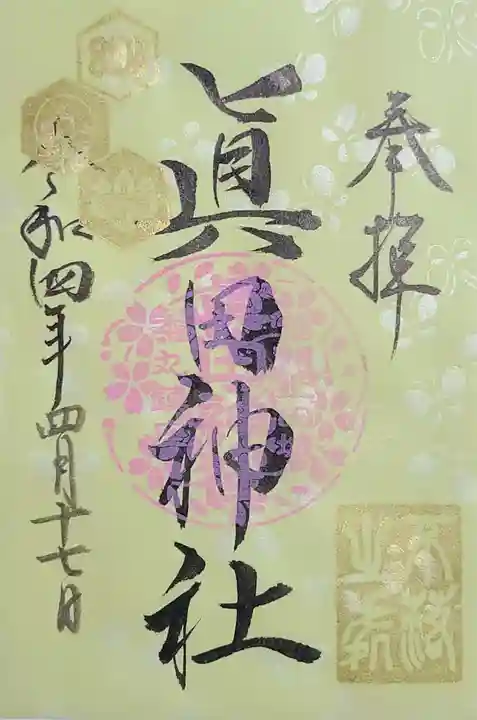 奉拝
眞田神社
令和四年四月十七日